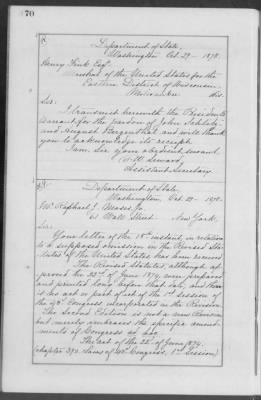 70
Department of State,
Washington Oct. 29 - 1878.
Henry Fink Esq.
Marshal of the United States for the
Eastern District of Wisconsin,
Milwaukee
Sir:
I transmit herewith the President's
warrant for the pardon of John
and August and will thank
you to acknowledge its receipt.
I am, Sir, your obedient servant,
F. W. Seward,
Assistant Secretary.
Department of State,
Washington, Oct. 29 - 1878.
Mr. Raphael J. Moses, Jr.
Wall Street. New York.
Sir:
Your letter of the 18th instant, in relation
to a supposed omission in the Revised Sta-
tutes of the United States has been received.
The Revised Statutes, although ap-
proved the 22d of June 1874, were prepared
and printed long before that date, and there
is no act or part of act of the 1st session of
the 43d Congress incorporated in the Revision.
The Second Edition is not a new Revision
but merely embraces the specific amend-
ments of Congress
The act of the 22d of June 1874.
(chapter 390. Laws of 43d Congress, 1st Session)